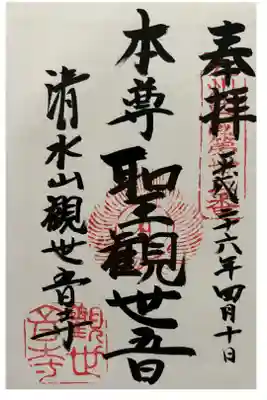 奉拝
平成二十六年四月十日
本尊
聖観世音
清水山観世音寺
觀世音寺